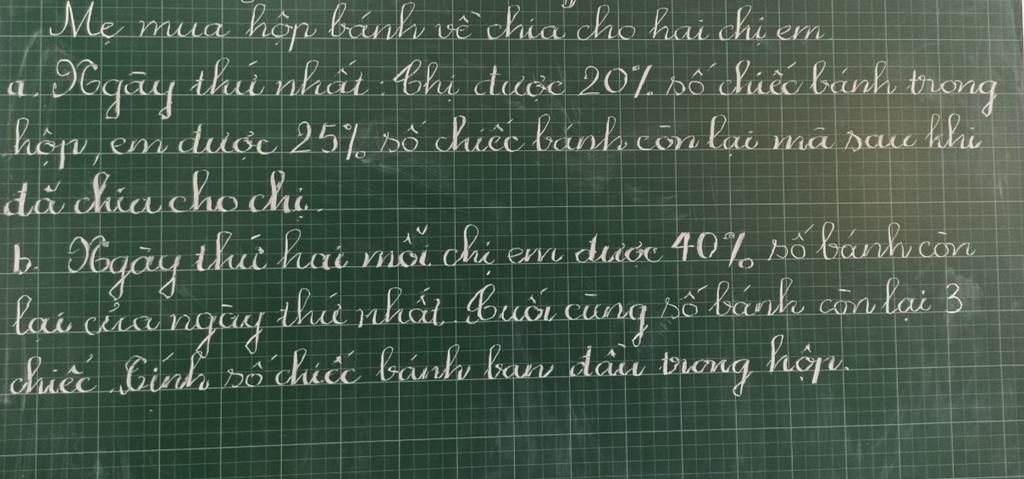 Mẹ mua hộp bánh về chia cho hai chị em
a. Ngày thứ nhất: Chị được 20% số chiếc bánh trong
hộp, em được 25% số chiếc bánh còn lại mà sau khi
đã chia cho chị.
b. Ngày thứ hai mỗi chị em được 40% số bánh còn
lại của ngày thứ nhất. Cuối cùng số bánh còn lại 3
chiếc. Tính số chiếc bánh ban đầu trong hộp.